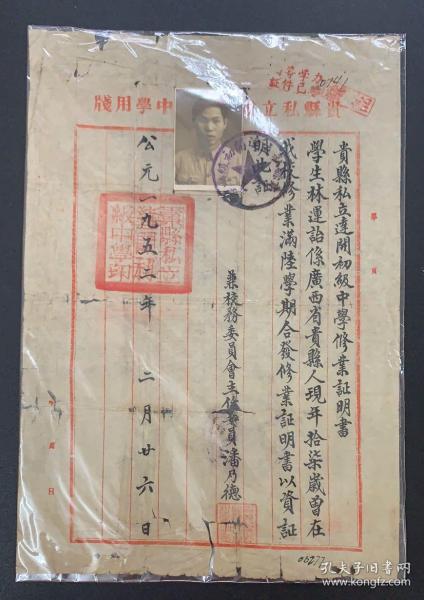 貴縣私立
中學用牋
貴縣私立達開初級中學修業証明書
學生林運詒係廣西省貴縣人現年拾柒歲曾在
我校修業滿陸學期合發修業証明書以資証
明此証
兼校務委員會主任委員潘乃德
公元一九五二年二月廿六日
06277
孔夫子旧书网
www.kongfz.com